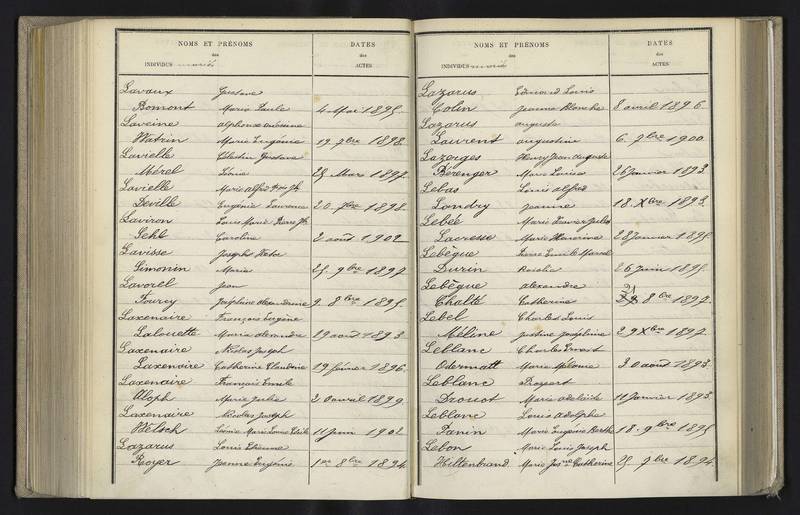 NOMS ET PRÉNOMS DATES
des des
INDIVIDUS mariés ACTES
Lavaux Gustave
Bomont Marie Paule 4 Mai 1895.
Laveine alphonse
Watrin Marie Eugénie 19 7bre 1898.
Lavielle Célestin Gustave
Mérel Léonie 29 Mars 1897.
Lavielle Marie alfred Jh
Deville Eugénie Laurence 20 7bre 1898.
Laviron Louis Marie Pierre Jh
Sehl Caroline 2 août 1902
Lavisse Joseph Victor
Simonin Marie 25. 9bre 1897
Lavorel Jean
Fourey Joséphine alexandrine 9. 8bre 1895.
Laxenaire François Eugène
Lalouette Maria alexandre 29 août 1893
Laxenaire Nicolas Joseph
Laxenaire Catherine Claudine 19 février 1896.
Laxenaire François Emile
Aloph Marie Julie 20 avril 1899.
Laxenaire Nicolas Joseph
Welsch Léonie Marie Louise 11 Juin 1902
Lazarus Louis Etienne
Royer Jeanne Eugénie 1er 8bre 1894
NOMS ET PRÉNOMS DATES
des des
INDIVIDUS mariés ACTES
Lazarus Edouard Louis
Colin Jeanne Blanche 8 avril 1896.
Lazarus auguste
Laurent augustine 6. 7bre 1900.
Lazarges Henry Jean auguste
Bérenger Marie Louise 26 Janvier 1893
Lebas Louis alfred
Londry Jeanne 18. Xbre 1893.
Lebée Marie Xavier Jules
Lacresse Marie 28 Janvier 1895.
Lebègue Pierre Emile Marcel
Durin Rosalie 26 Juin 1895.
Lebègue alexandre
Chalté Catherine 21 8bre 1897.
Lebel Charles Louis
Méline Justine Joséphine 29 Xbre 1897.
Leblanc Charles Ernest
Odermatt Marie Mélanie 30 août 1893.
Leblanc Prospert
Drouot Marie adelaïde 11 Janvier 1893.
Leblanc Louis adolphe
Panin Marie Eugénie Berthe 18. 9bre 1895
Lebon Marie Louis Joseph
Hiltenbrand Marie Jnne Catherine 25. 7bre 1894